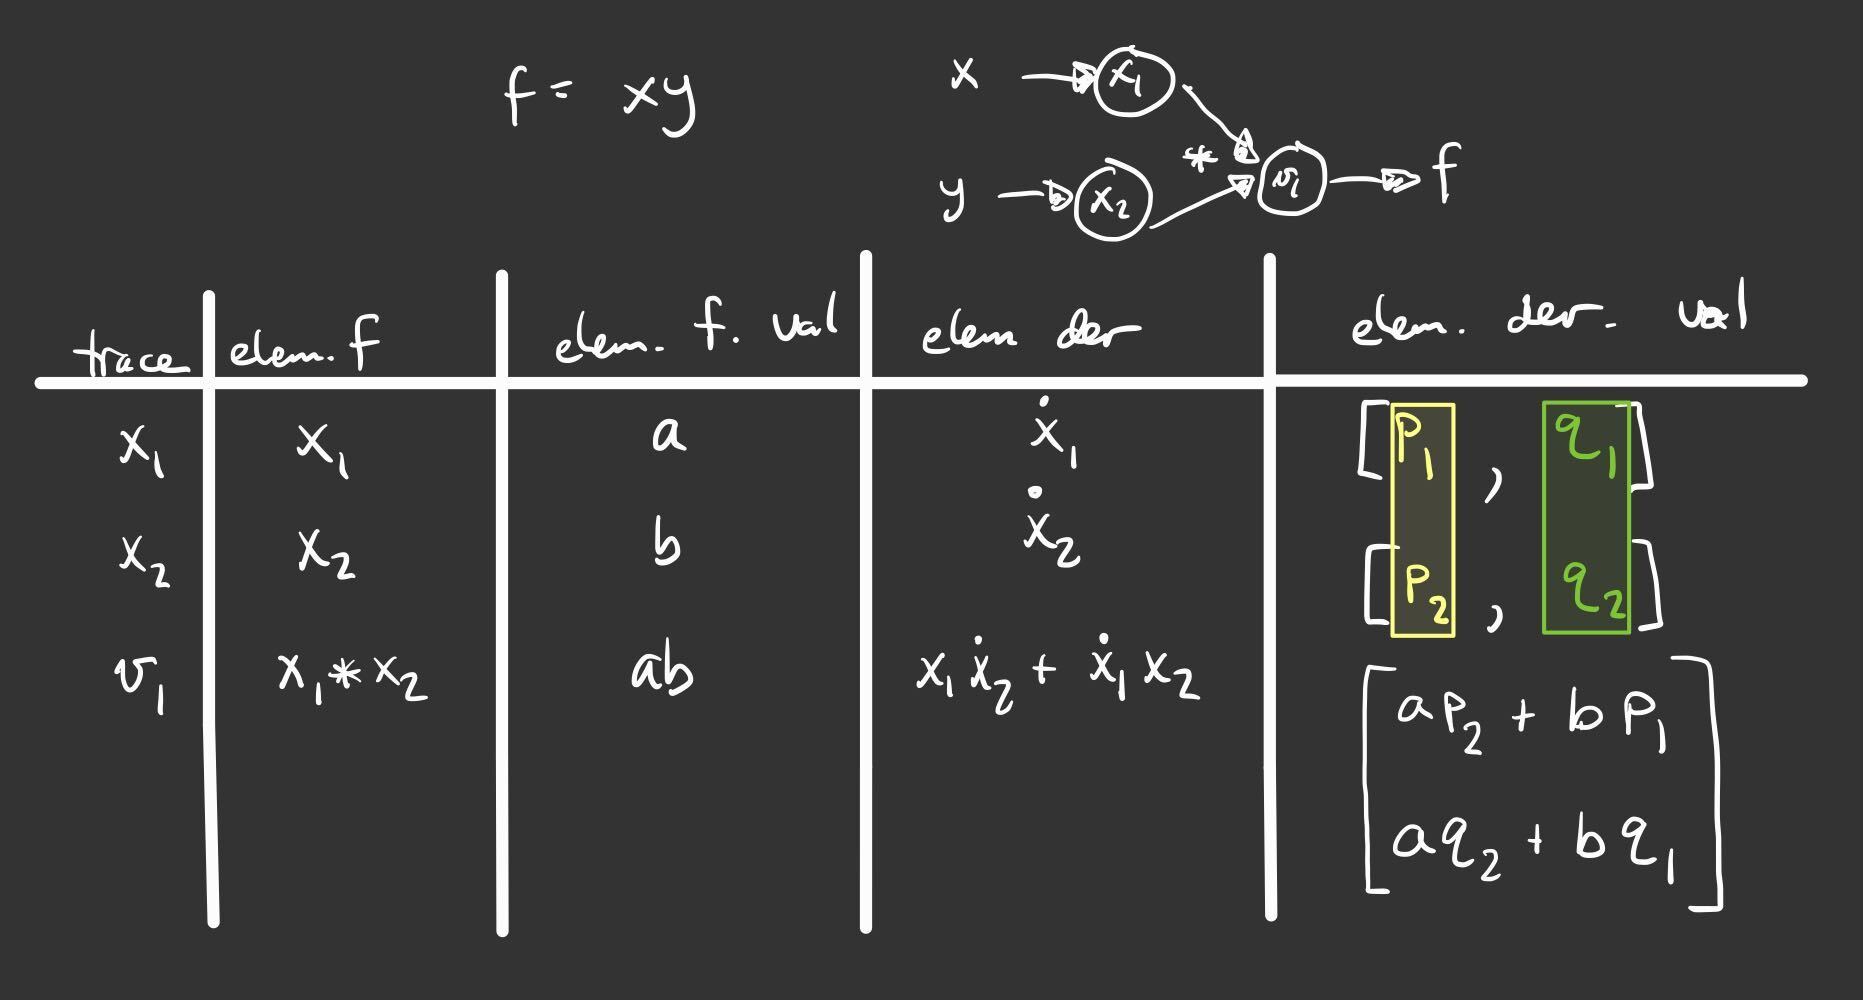 f = xy
x → x₁
* v₁ → f
y → x₂
trace elem. f elem. f. val elem der elem. der. val
x₁ x₁ a ẋ₁ [p₁, q₁]
x₂ x₂ b ẋ₂ [p₂, q₂]
v₁ x₁ * x₂ ab x₁ẋ₂ + ẋ₁x₂ [ap₂ + bp₁
aq₂ + bq₁]